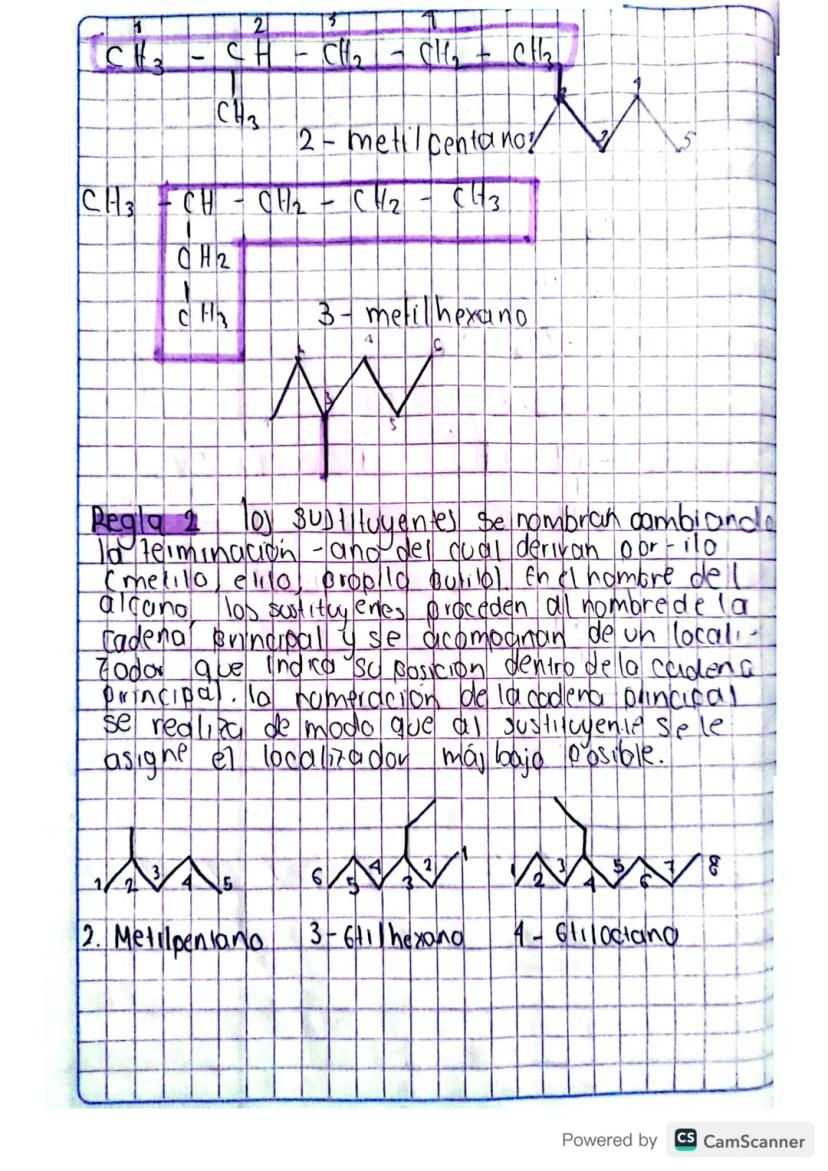 1 2 3 4
CH3 - CH - CH2 - CH2 - CH3
CH3
2 - metilpentano
5
CH3 - CH - CH2 - CH2 - CH3
CH2
CH3
3 - metilhexano
4
3
5
Regla 2 los sustituyentes se nombran cambiando
la terminación -ano del cual derivan por - ilo
(metilo, etilo, propilo butilo). En el nombre del
alcano, los sustituyenes proceden al nombre de la
cadena principal y se acompañan de un locali-
zador que indica su posición dentro de la cadena
principal. la numeración de la cadena principal
se realiza de modo que al sustituyente se le
asigne el localizador más bajo posible.
1 2 3 4 5 6 5 4 3 2 1 1 2 3 4 5 6 7 8
2. Metilpentano 3-Etilhexano 4 - Etiloctano
Powered by CS CamScanner